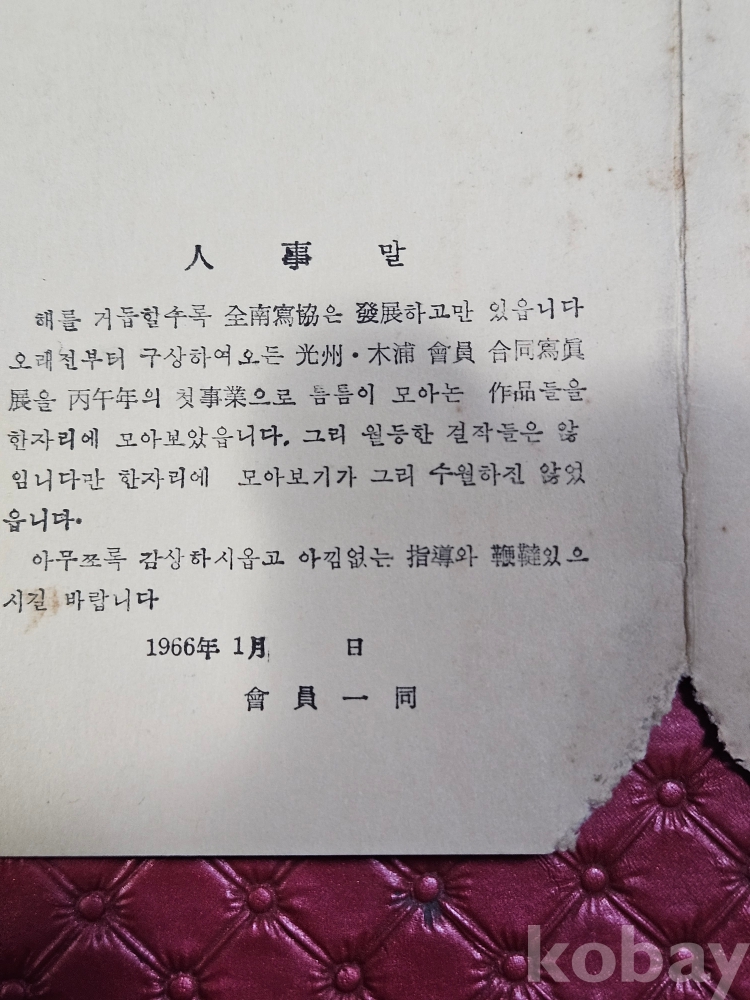 人 事 말
해를 거듭할수록 全南寫協은 發展하고만 있읍니다
오래전부터 구상하여오든 光州·木浦 會員 合同寫眞
展을 丙午年의 첫事業으로 틈틈이 모아논 作品들을
한자리에 모아보았읍니다. 그리 월등한 걸작들은 않
입니다만 한자리에 모아보기가 그리 수월하진 않었
읍니다.
아무쪼록 감상하시옵고 아낌없는 指導와 鞭韃있으
시길 바랍니다
1966年 1月 日
會 員 一 同
kobay